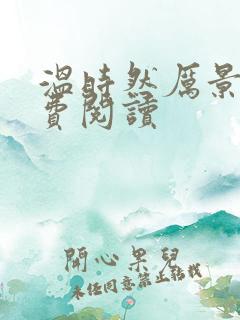 溫時然厲景
費閱讀
開心果兒
未經同意禁止轉載